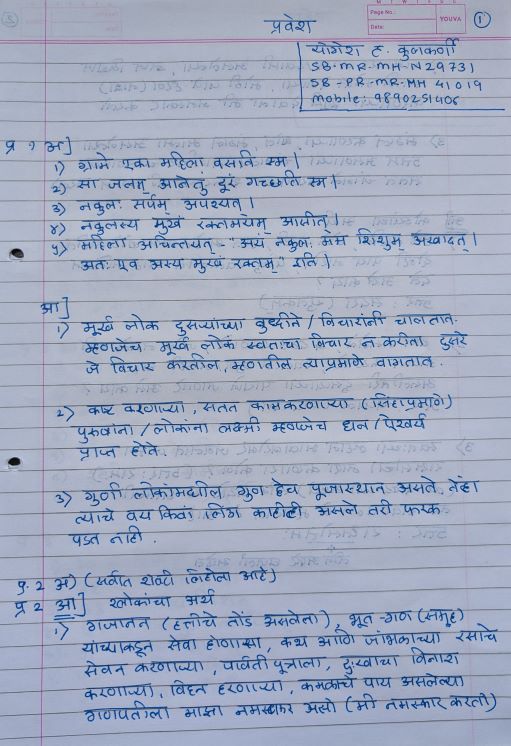 प्रवेश
Page No.:
Date:
YOUVA
1
योगेश ह. कुलकर्णी
SB-MR-MH-N29731
SB-PR-MR-MH 41019
mobile: 9890251406
प्र १ अ]
१) ग्रामे एका महिला वसति स्म |
२) सा जलम् आनेतुं दूरं गच्छति स्म |
३) नकुलः सर्पम् अपश्यत् |
४) नकुलस्य मुखं रक्तमयम् आसीत् |
५) महिला अचिन्तयत् "अयं नकुलः मम शिशुम् अखादत् |
अतः एव अस्य मुखं रक्तम्" इति |
आ]
१) मूर्ख लोक दुसऱ्यांच्या बुध्दीने / विचारांनी चालतात.
म्हणजेच मूर्ख लोक स्वतःचा विचार न करीता दुसरे
जे विचार करतील, म्हणतील त्याप्रमाणे वागतात.
२) कष्ट करणाऱ्या, सतत काम करणाऱ्या (सिंहाप्रमाणे)
पुरुषांना / लोकांना लक्ष्मी म्हणजेच धन / ऐश्वर्य
प्राप्त होते.
३) गुणी लोकामधील गुण हेच पूजास्थान असते. तेव्हा
त्याचे वय किंवा लिंग काहीही असले तरी फरक
पडत नाही.
प्र. २ अ) (सर्वात शेवटी लिहीला आहे)
प्र २ आ] श्लोकांचा अर्थ
१) गजानन (हत्तीचे तोंड असलेला), भूत-गण (समूह)
यांच्याकडून सेवा होणाऱ्या, कथ आणि जांभळाच्या रसाचे
सेवन करणाऱ्या, पार्वती पूत्राला, दुःखाचा विनाश
करणाऱ्या, विघ्न हरणाऱ्या, कमळाचे पाय असलेल्या
गणपतीला माझा नमस्कार असो (मी नमस्कार करतो)